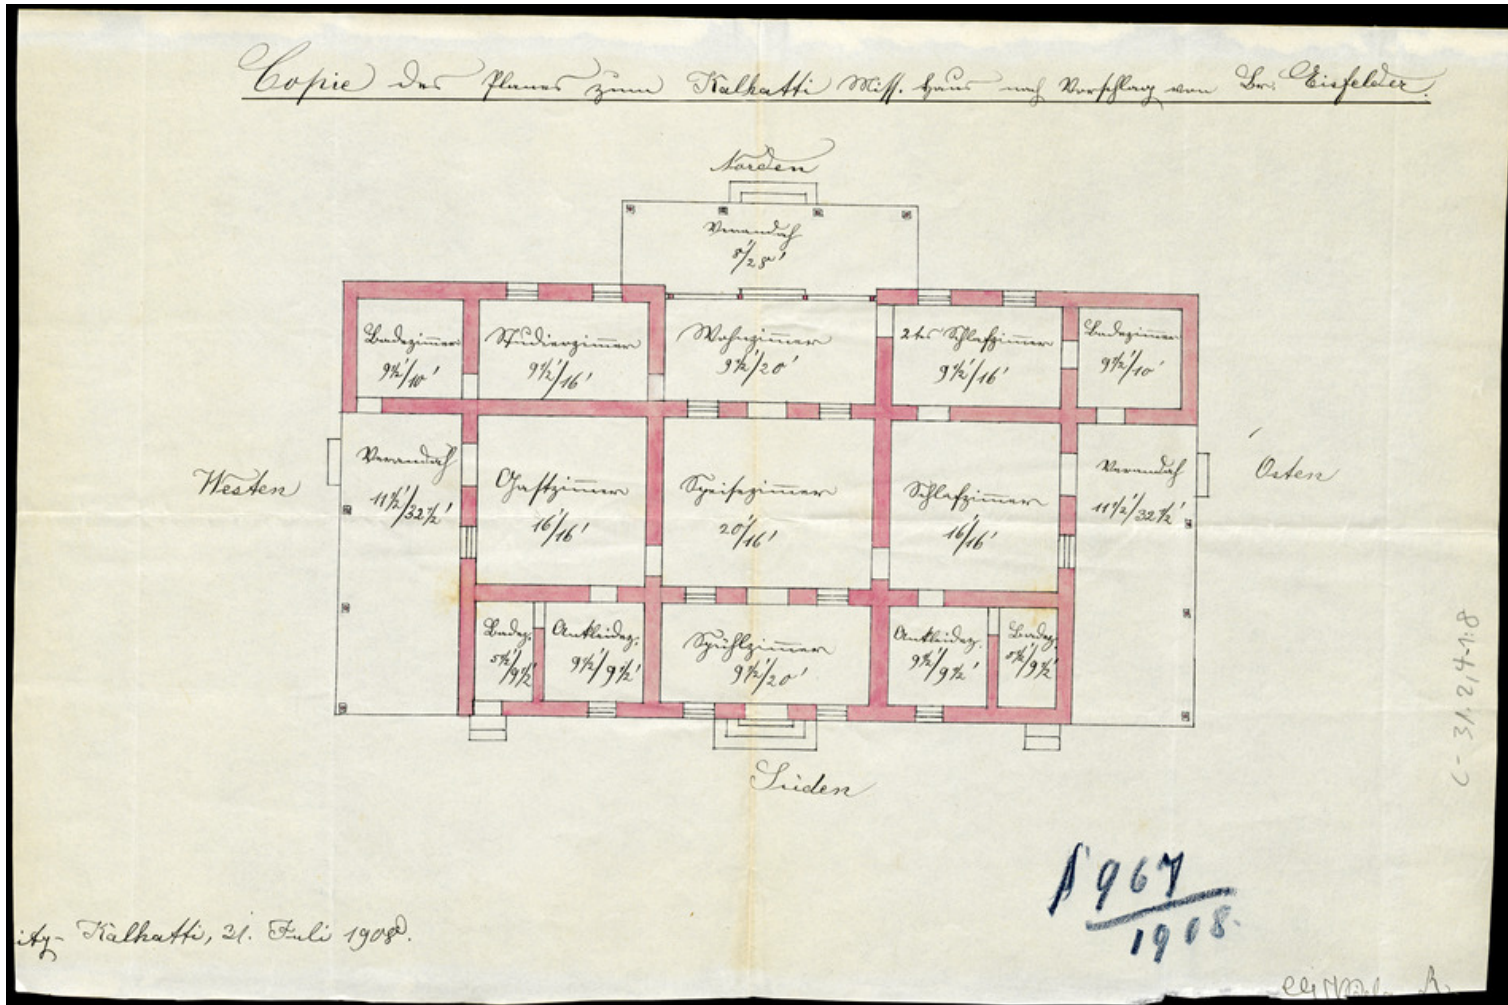 Copie des Planes zum Kalhatti Miss. Haus nach Vorschlag von Br. Eisfelder.
Norden
Verandah
8'/28'
Badezimmer
9½'/10'
Studierzimmer
9½'/16'
Wohnzimmer
9½'/20'
2tes Schlafzimmer
9½'/16'
Badezimmer
9½'/10'
Westen
Verandah
11½'/32½'
Gastzimmer
16'/16'
Speisezimmer
20'/16'
Schlafzimmer
16'/16'
Verandah
11½'/32½'
Osten
Badez.
5½'/9½'
Ankleidez.
9½'/9½'
Spühlzimmer
9½'/20'
Ankleidez.
9½'/9½'
Badez.
5½'/9½'
Süden
C-31.2,4.1:8
967
1908.
Kalhatti, 21. Juli 1908.